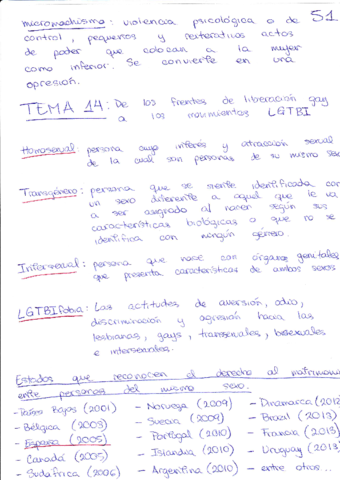 micromachismo: violencia psicológica o de 51
control, pequeños y reiterativos actos
de poder que colocan a la mujer
como inferior. Se convierte en una
opresión.
TEMA 14: De los frentes de liberación gay
a los movimientos LGTBI
Homosexual persona cuyo interés y atracción sexual
de la cual son personas de su mismo sexo
Transgénero: persona que se siente identificada con
un sexo diferente a aquel que le va
a ser asignado al nacer según sus
características biológicas o que no se
identifica con ningún género.
Intersexual: persona que nace con órganos genitales
que presenta características de ambos sexos
LGTBIfobia: Las actitudes de aversión, odio,
discriminación y agresión hacia las
lesbianas, gays, transexuales, bisexuales
e intersexuales.
Estados que reconocen el derecho al matrimonio
entre personas del mismo sexo.
- Países Bajos (2001) - Noruega (2009) - Dinamarca (2012
- Bélgica (2003) - Suecia (2009) - Brasil (2013)
- España (2005) - Portugal (2010) - Francia (2013)
- Canadá (2005) - Islandia (2010) - Uruguay (2013)
- Sudáfrica (2006) - Argentina (2010) - entre otros...